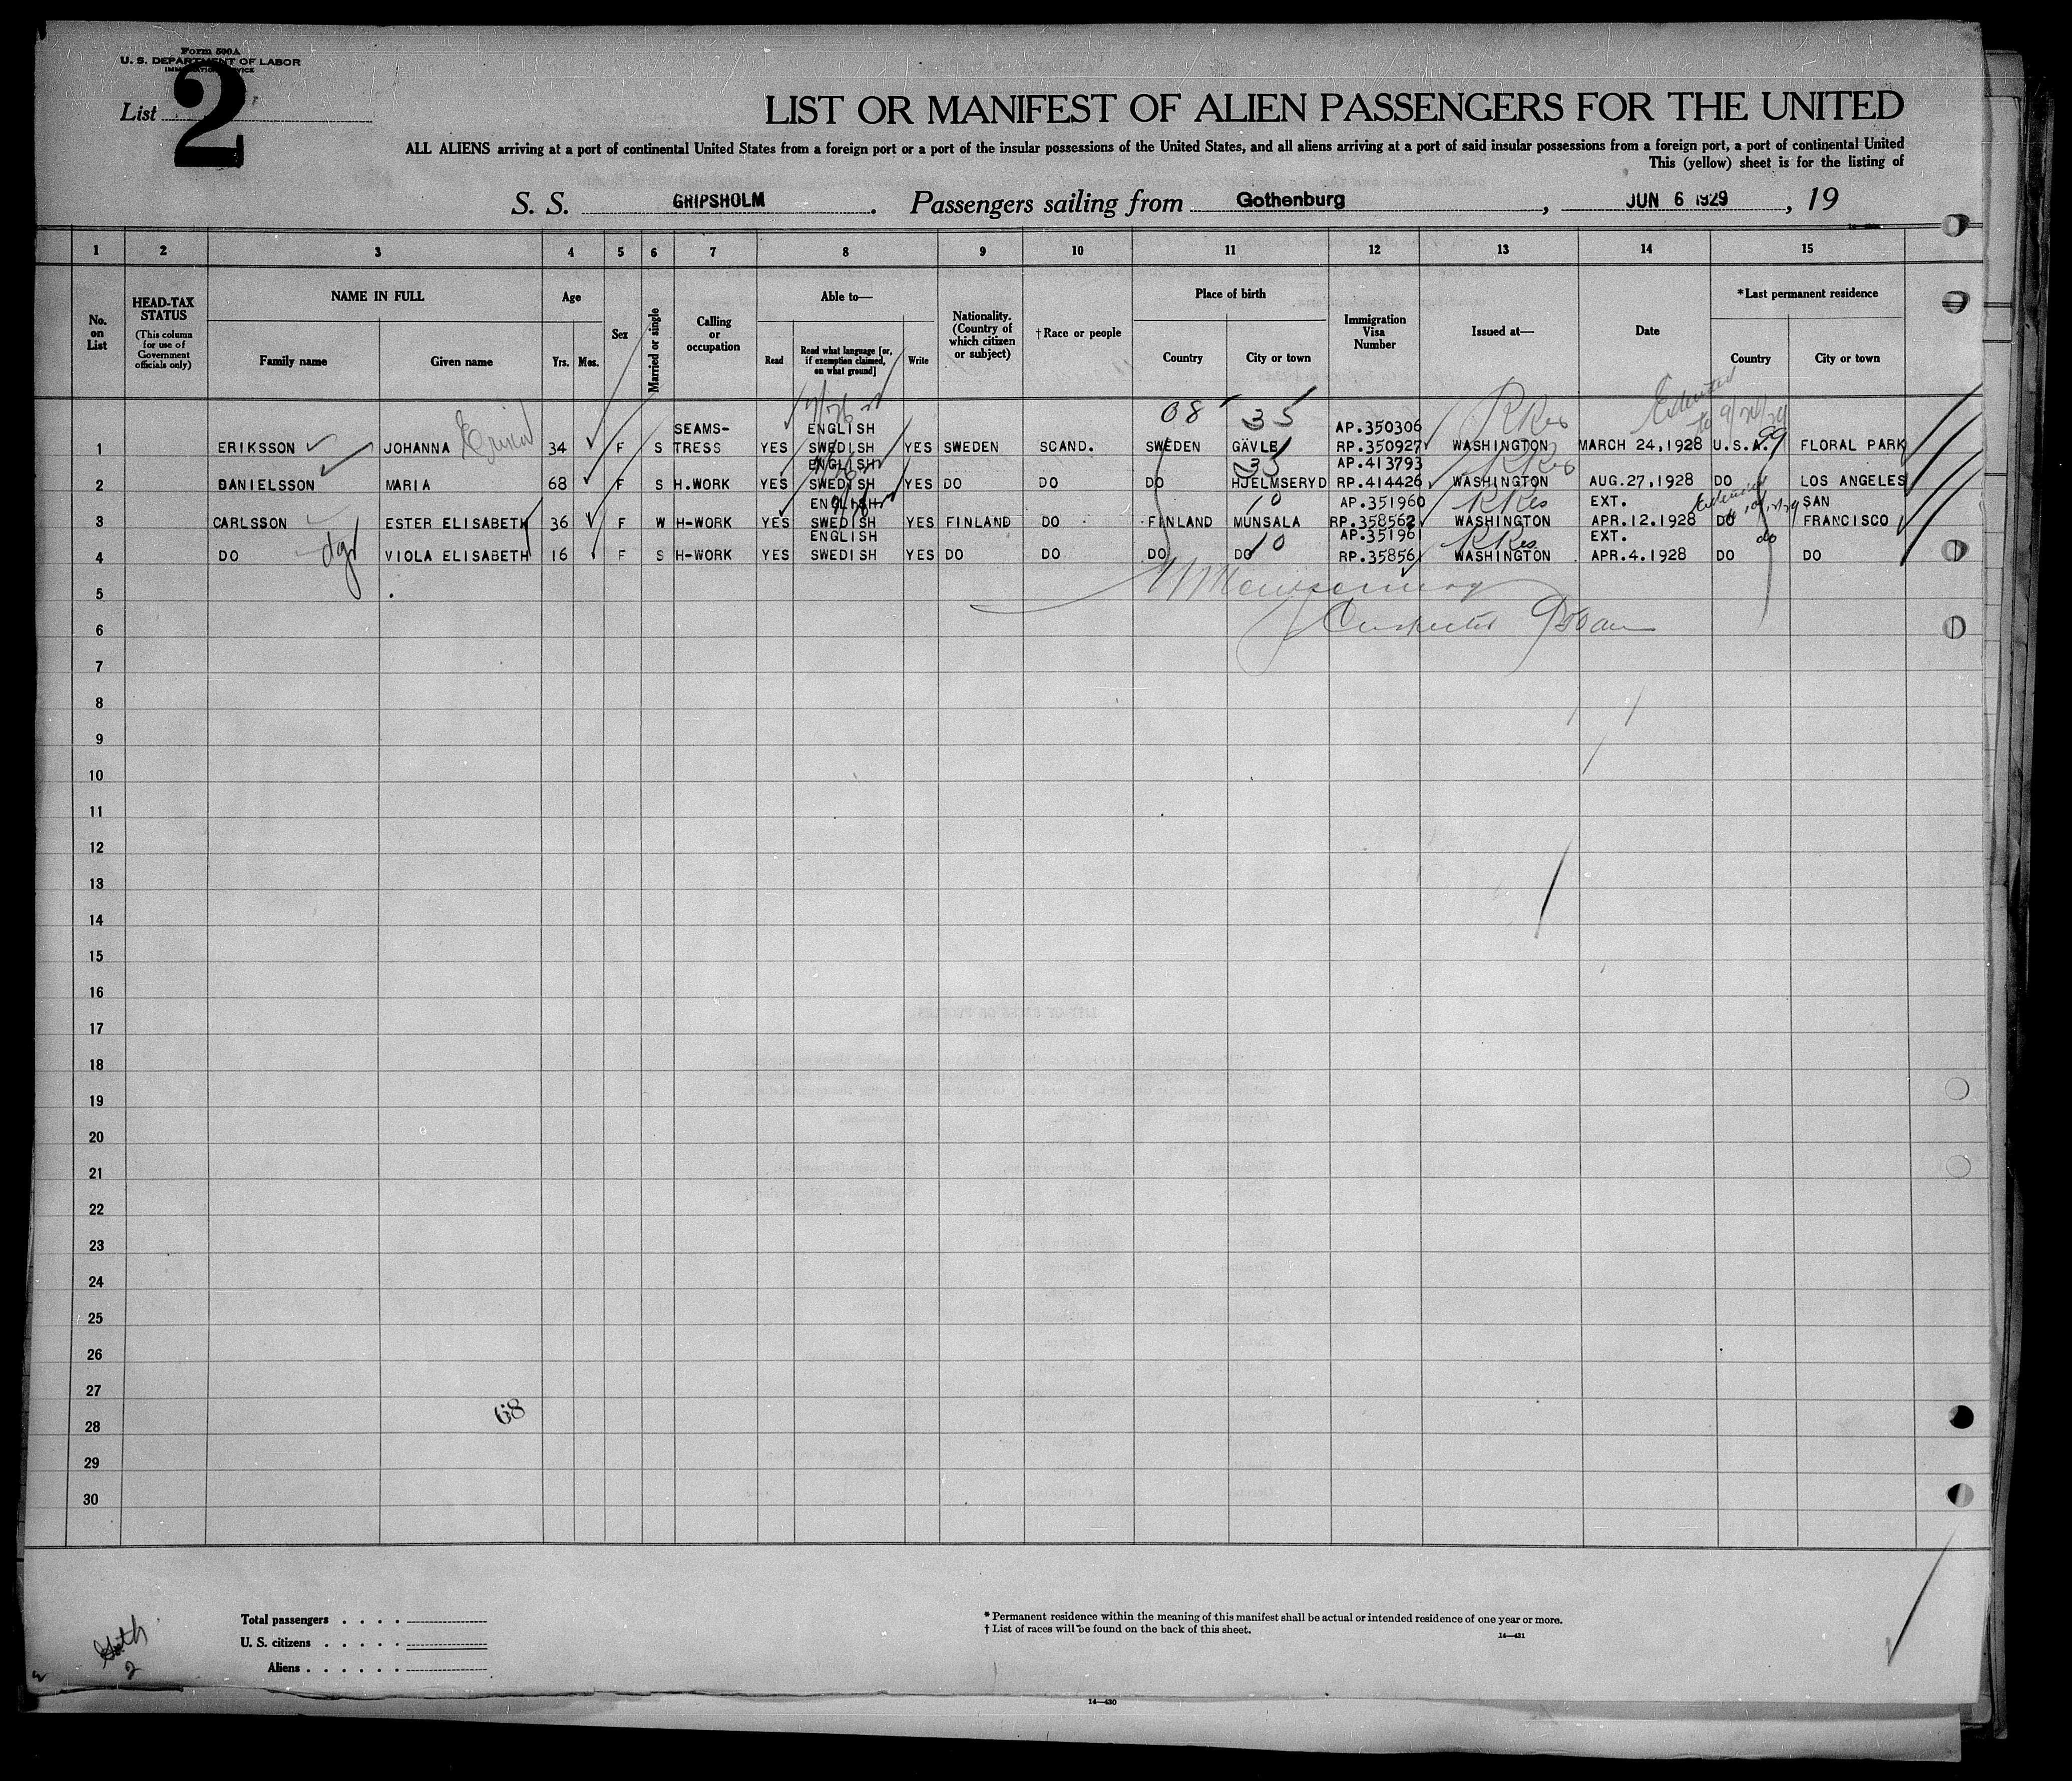 Form 500A
U. S. DEPARTMENT OF LABOR
IMMIGRATION SERVICE
List 2
LIST OR MANIFEST OF ALIEN PASSENGERS FOR THE UNITED
ALL ALIENS arriving at a port of continental United States from a foreign port or a port of the insular possessions of the United States, and all aliens arriving at a port of said insular possessions from a foreign port, a port of continental United
This (yellow) sheet is for the listing of
S. S. GRIPSHOLM. Passengers sailing from Gothenburg, JUN 6 1929, 19
1 2 3 4 5 6 7 8 9 10 11 12 13 14 15
No. on List
HEAD-TAX STATUS (This column for use of Government officials only)
NAME IN FULL
Family name Given name
Age
Yrs. Mos.
Sex
Married or single
Calling or occupation
Able to—
Read Read what language [or, if exemption claimed, on what ground] Write
Nationality. (Country of which citizen or subject)
†Race or people
Place of birth
Country City or town
Immigration Visa Number
Issued at—
Date
*Last permanent residence
Country City or town
08 35 Extended to 9/24/29
SEAMS- ENGLISH AP.350306
1 ERIKSSON JOHANNA 34 F S TRESS YES SWEDISH YES SWEDEN SCAND. SWEDEN GÄVLE RP.350927 WASHINGTON MARCH 24,1928 U.S.A. 99 FLORAL PARK
ENGLISH 35 AP.413793
2 DANIELSSON MARIA 68 F S H.WORK YES SWEDISH YES DO DO DO HJELMSERYD RP.414426 WASHINGTON AUG.27,1928 DO LOS ANGELES
ENGLISH 10 AP.351960 EXT. SAN
3 CARLSSON ESTER ELISABETH 36 F W H-WORK YES SWEDISH YES FINLAND DO FINLAND MUNSALA RP.358562 WASHINGTON APR.12.1928 DO FRANCISCO
ENGLISH 10 AP.351961 EXT. do
4 DO dgr VIOLA ELISABETH 16 F S H-WORK YES SWEDISH YES DO DO DO DO RP.35856 WASHINGTON APR.4.1928 DO DO
5
Inspector 9 50 am
6
7
8
9
10
11
12
13
14
15
16
17
18
19
20
21
22
23
24
25
26
27
68
28
29
30
Total passengers
U. S. citizens
Aliens
* Permanent residence within the meaning of this manifest shall be actual or intended residence of one year or more.
† List of races will be found on the back of this sheet.
14—431
Goth
2
14—430